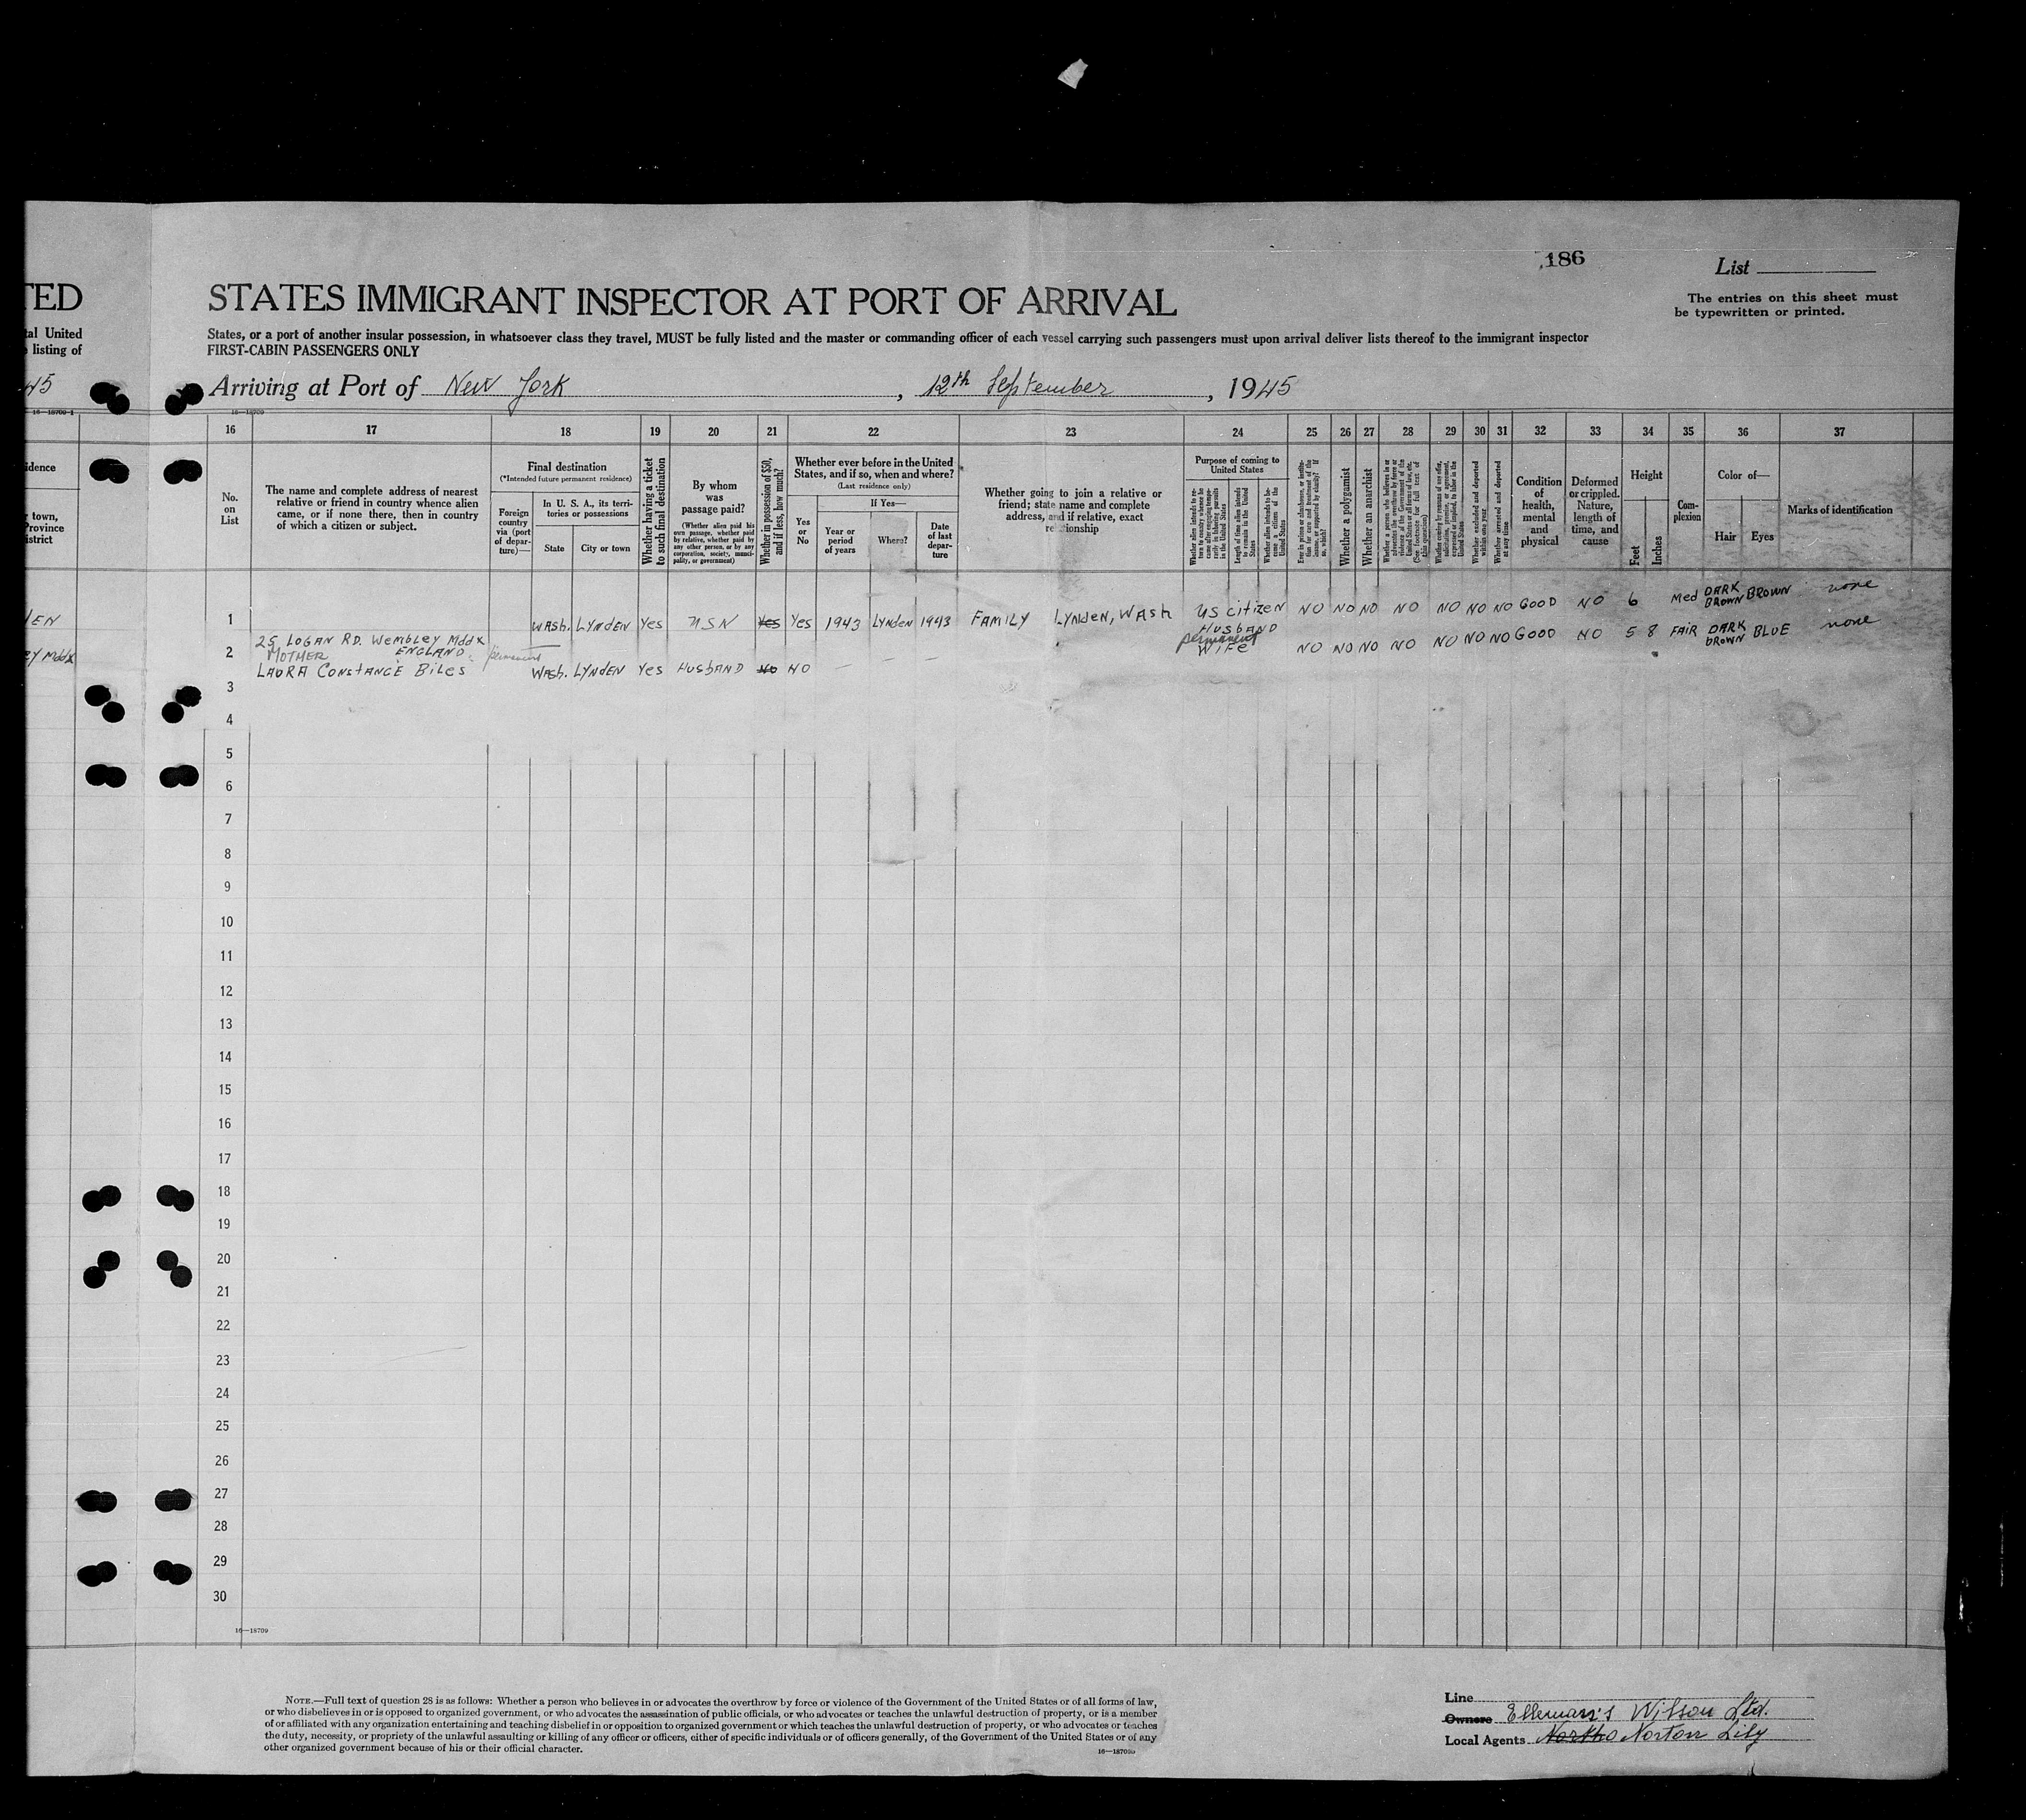 186
List
The entries on this sheet must
be typewritten or printed.
TED
STATES IMMIGRANT INSPECTOR AT PORT OF ARRIVAL
tal United
listing of
States, or a port of another insular possession, in whatsoever class they travel, MUST be fully listed and the master or commanding officer of each vessel carrying such passengers must upon arrival deliver lists thereof to the immigrant inspector
FIRST-CABIN PASSENGERS ONLY
45
Arriving at Port of New York, 12th September, 1945
16—18709-1
16—18709
16 17 18 19 20 21 22 23 24 25 26 27 28 29 30 31 32 33 34 35 36 37
idence
r town,
Province
istrict
No.
on
List
The name and complete address of nearest
relative or friend in country whence alien
came, or if none there, then in country
of which a citizen or subject.
Final destination
(*Intended future permanent residence)
Foreign
country
via (port
of depar-
ture)—
In U. S. A., its terri-
tories or possessions
State
City or town
Whether having a ticket
to such final destination
By whom
was
passage paid?
(Whether alien paid his
own passage, whether paid
by relative, whether paid by
any other person, or by any
corporation, society, munici-
pality, or government)
Whether in possession of $50,
and if less, how much?
Whether ever before in the United
States, and if so, when and where?
(Last residence only)
Yes
or
No
If Yes—
Year or
period
of years
Where?
Date
of last
depar-
ture
Whether going to join a relative or
friend; state name and complete
address, and if relative, exact
relationship
Purpose of coming to
United States
Whether alien intends to re-
turn to country whence he
came after engaging tempo-
rarily in laboring pursuits
in the United States
Length of time alien intends
to remain in the United
States
Whether alien intends to be-
come a citizen of the
United States
Whether a polygamist
Whether an anarchist
Whether excluded and deported
within one year
Whether arrested and deported
at any time
Condition
of
health,
mental
and
physical
Deformed
or crippled.
Nature,
length of
time, and
cause
Height
Feet
Inches
Com-
plexion
Color of—
Hair
Eyes
Marks of identification
DEN
1 Wash. LYNDEN Yes USN Yes Yes 1943 LYNDEN 1943 FAMILY LYNDEN, WASH US citizen NO NO NO NO NO NO NO GOOD NO 6 Med DARK BROWN BROWN none
HUSBAND
25 LOGAN RD. Wembley Mddx
EY Mddx
2 MOTHER ENGLAND permanent permanent
WIFE NO NO NO NO NO NO NO GOOD NO 5 8 FAIR DARK BROWN BLUE none
LAURA CONSTANCE BILES Wash. LYNDEN Yes HUSBAND No NO — — —
3
4
5
6
7
8
9
10
11
12
13
14
15
16
17
18
19
20
21
22
23
24
25
26
27
28
29
30
16—18709
NOTE.—Full text of question 28 is as follows: Whether a person who believes in or advocates the overthrow by force or violence of the Government of the United States or of all forms of law,
or who disbelieves in or is opposed to organized government, or who advocates the assassination of public officials, or who advocates or teaches the unlawful destruction of property, or is a member
of or affiliated with any organization entertaining and teaching disbelief in or opposition to organized government or which teaches the unlawful destruction of property, or who advocates or teaches
the duty, necessity, or propriety of the unlawful assaulting or killing of any officer or officers, either of specific individuals or of officers generally, of the Government of the United States or of any
other organized government because of his or their official character.
16—18709b
Line
Owners Ellerman's Wilson Ltd.
Local Agents Norton Lily